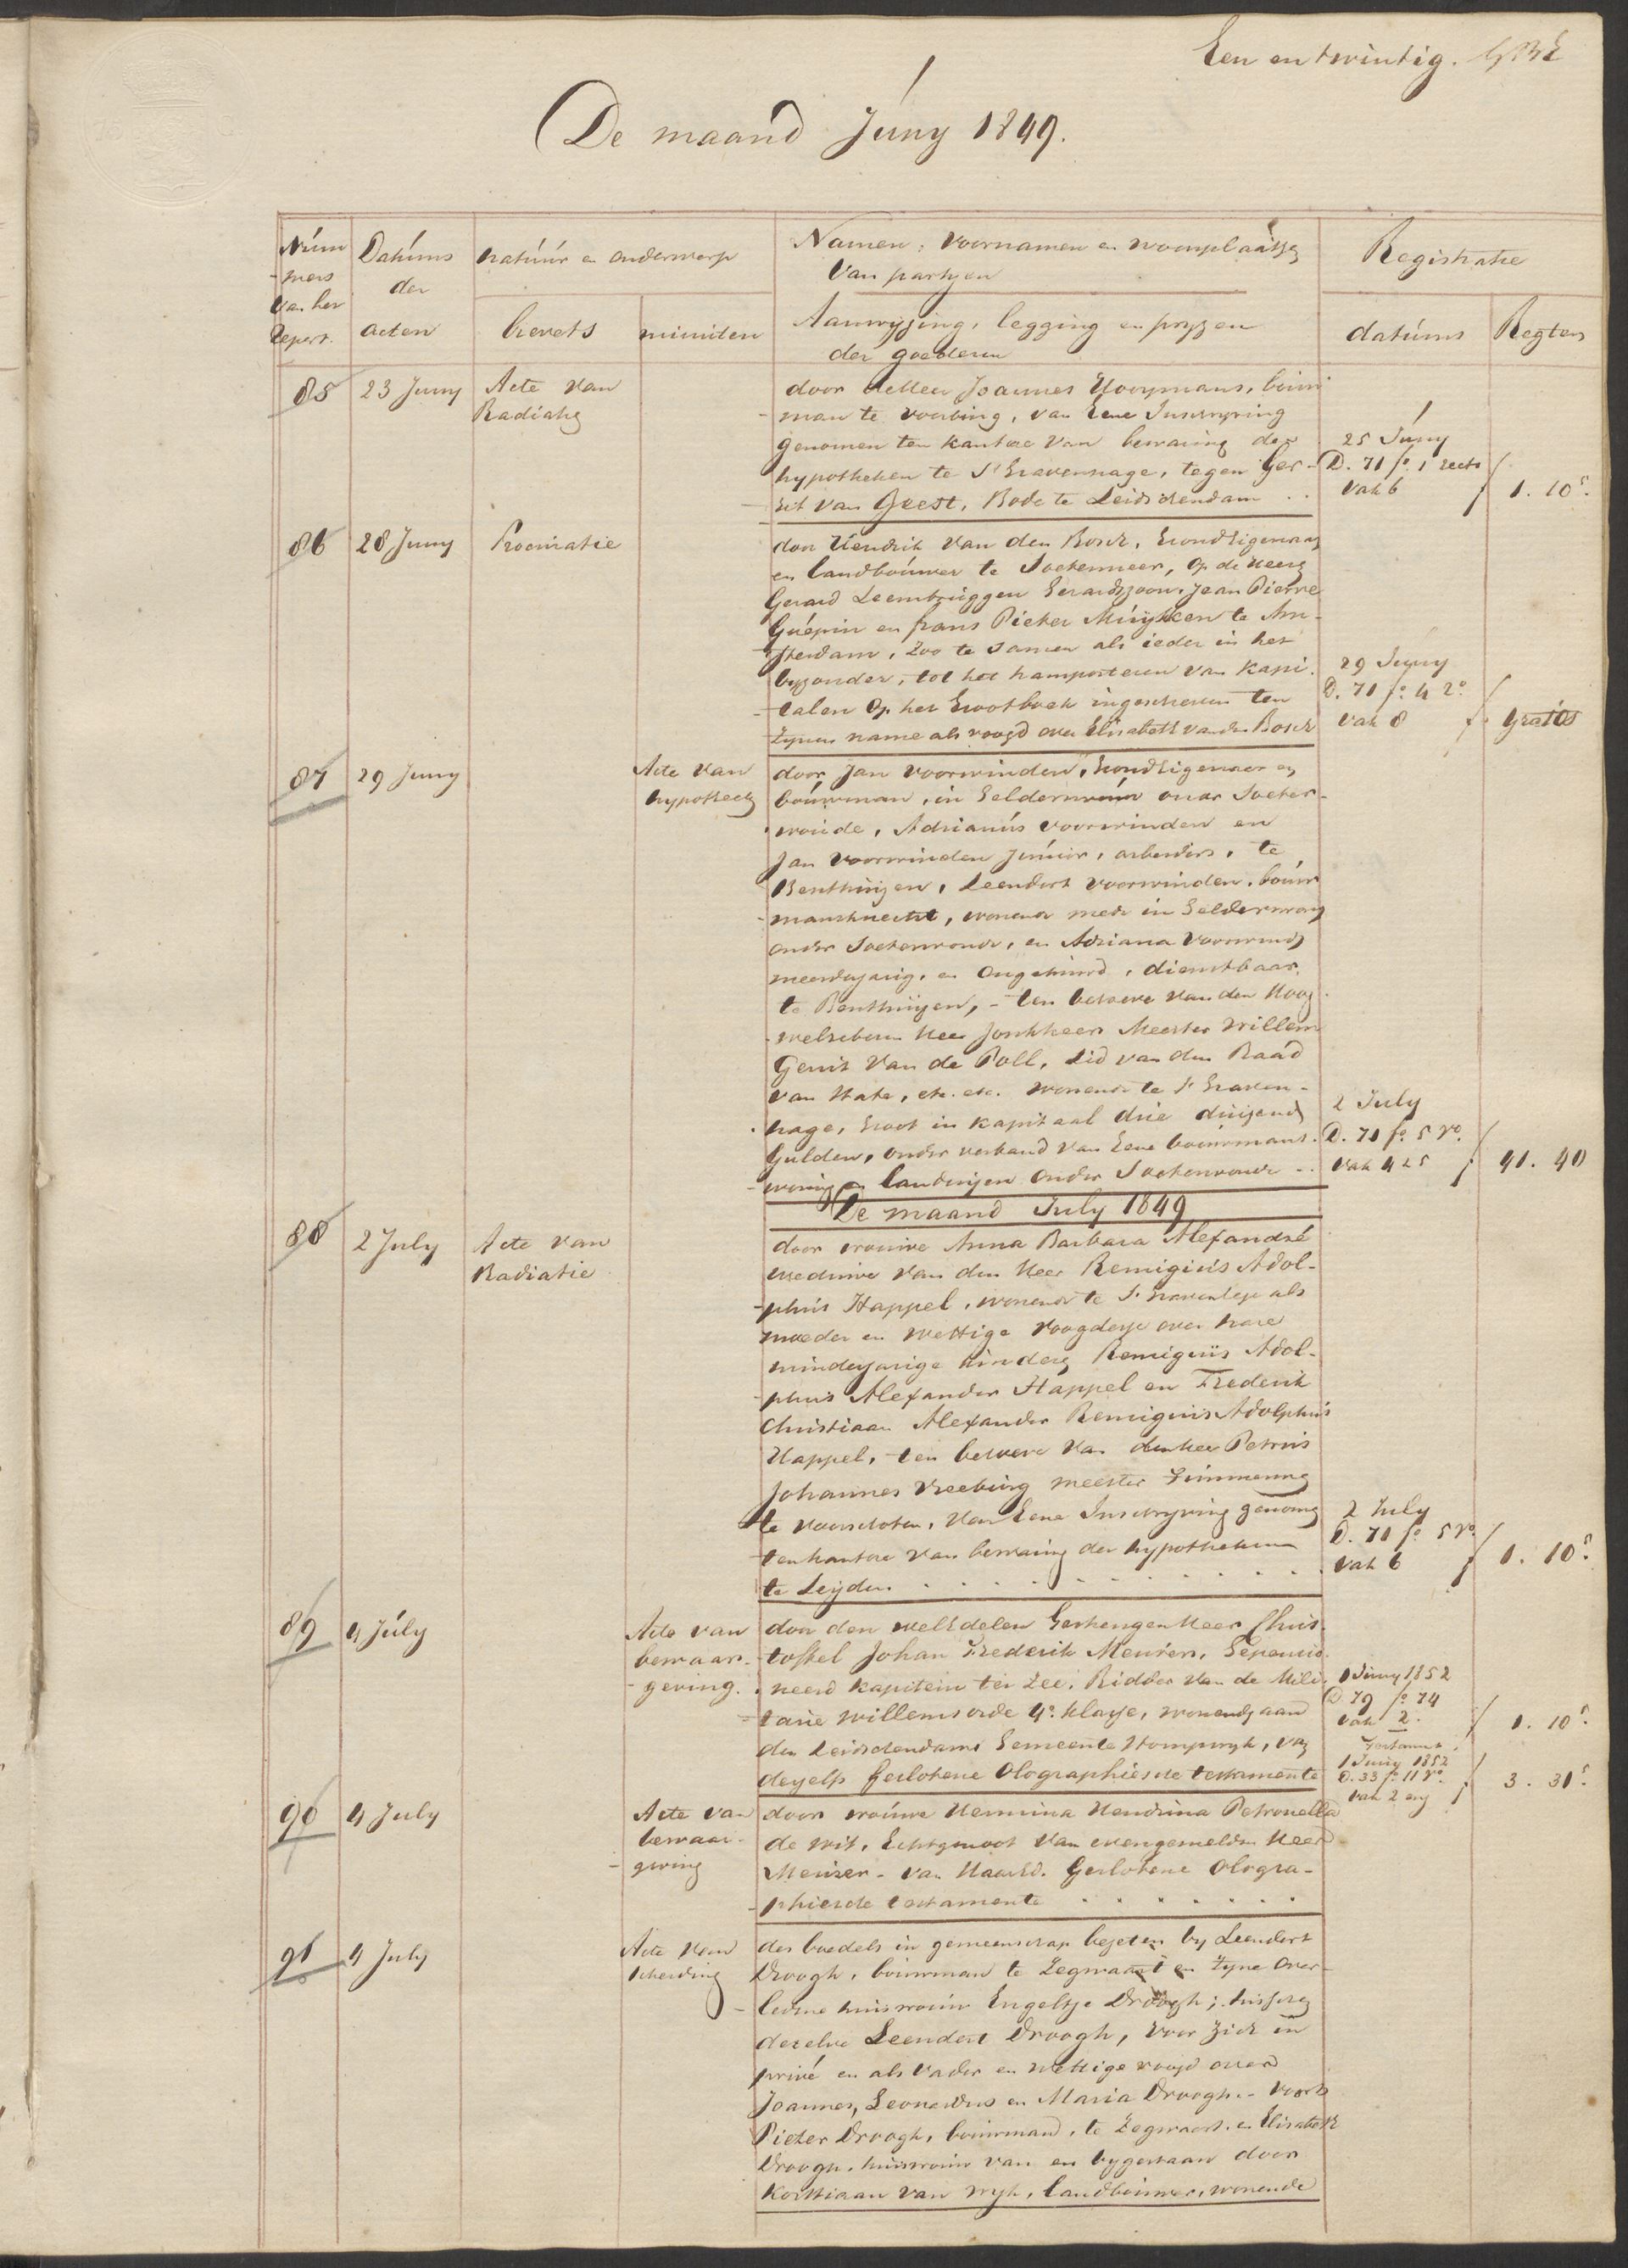 Een en twintig.
De maand Juny 1849.
Num
-mers
van het
Repert.
Datums
der
acten
natuur en onderwerp
brevets
minuten
Namen, voornamen en woonplaatsen
van partyen
Aanwyzing, legging en pryzen
der goederen
Registratie
datums
Regten
85
23 Juny
Acte van
Radiatie
door den Heer Joannes Hooymans, bouw
-man te Voorburg, van Eene Inschryving
genomen ten kantore van bewaring der
hypotheken te S'Gravenhage, tegen Ger-
-rit van Geest, Bode te Leidschendam ..
25 Juny
D. 71 fo. 1 recto
vak 6
1. 10 5.
86
28 Juny
Procuratie
door Hendrik van den Bosch, Grondeigenaar
en landbouwer te Soetermeer, op de Heeren
Gerard Leembruggen Gerardszoon, Jean Pierre
Guépin en frans Pieter Muysken te Am-
-sterdam, zoo te samen als ieder in het
byzonder, tot het transporteren van kapi
-talen op het Grootboek ingeschreven ten
zynen name als voogd over Elisabeth van den Bosch
29 Juny
D. 71 fo. 4 ro.
vak 8
gratis
87
29 Juny
Acte van
hypotheek
door Jan Voorwinden, Grondeigenaar en
bouwman, in Gelderswoude onder Soeter-
woude, Adrianus Voorwinden en
Jan Voorwinden Junior, arbeiders, te
Benthuizen, Leendert Voorwinden, bouw
-mansknecht, wonende mede in Gelderswoude
onder Soeterwoude, en Adriana Voorwinden
meerderjarig, en ongehuwd, dienstbaar
te Benthuizen, - ten behoeve van den Hoog
-welgeboren Heer Jonkheer Meester Willem
Gerrit van de Poll, Lid van den Raad
van State, etc. etc. wonende te S'Graven-
hage, Groot in kapitaal drie duizend
Gulden, onder verband van Eene bouwmans-
-woning en landeryen onder Soeterwoude ..
2 July
D. 71 fo. 5 ro.
vak 4 & 5
41. 40
De maand July 1849
88
2 July
Acte van
Radiatie
door vrouwe Anna Barbara Alexandré
weduwe van den Heer Remigius Adol-
-phus Happel, wonende te S'Gravenhage als
moeder en wettige voogdesse over hare
minderjarige kinderen Remigius Adol-
-phus Alexander Happel en Frederik
Christiaan Alexander Remigius Adolphus
Happel, ten behoeve van den Heer Petrus
Johannes Vreeburg meester Timmerman
te Voorschoten, van Eene Inschryving genomen
ten kantore van bewaring der hypotheken
te Leyden . . . . . . . . . . .
2 July
D. 71 fo. 5 ro.
vak 6
1. 10 5.
89
4 July
Acte van
bewaar-
-geving.
door den welEdelen Gestrengen Heer Chris-
-toffel Johan Frederik Meurer, Gepensio-
neerd kapitein ter Zee, Ridder van de Mili-
-taire Willemsorde 4e. klasse, wonende aan
den Leidschendam Gemeente Stompwyk, van
deszelfs Geslotene Olographiesche testamente
1 Juny 1852
D. 79 fo. 74
vak 2.
1. 10 5.
Testament
1 Juny 1852
D. 33 fo. 11 ro.
vak 2 en
3. 31 5.
90
4 July
Acte van
bewaar-
-geving
door vrouwe Hermina Hendrina Petronella
de Wit, Echtgenoot van evengemelden Heer
Meurer - van Haar Ed. Geslotene Ologra-
-phiesche testamente . . . . . . .
91
4 July
Acte van
scheiding
des boedels in gemeenschap bezeten by Leendert
Droogh, bouwman te Zegwaart en zyne over-
ledene huisvrouw Engeltje Droogh; tusschen
dezelve Leendert Droogh, voor zich in
privé en als vader en wettige voogd over
Joannes, Leonardus en Maria Droogh. - voorts
Pieter Droogh, bouwman, te Zegwaart, en Elisabeth
Droogh, huisvrouw van en bygestaan door
Korstiaan van Wyk, landbouwer, wonende